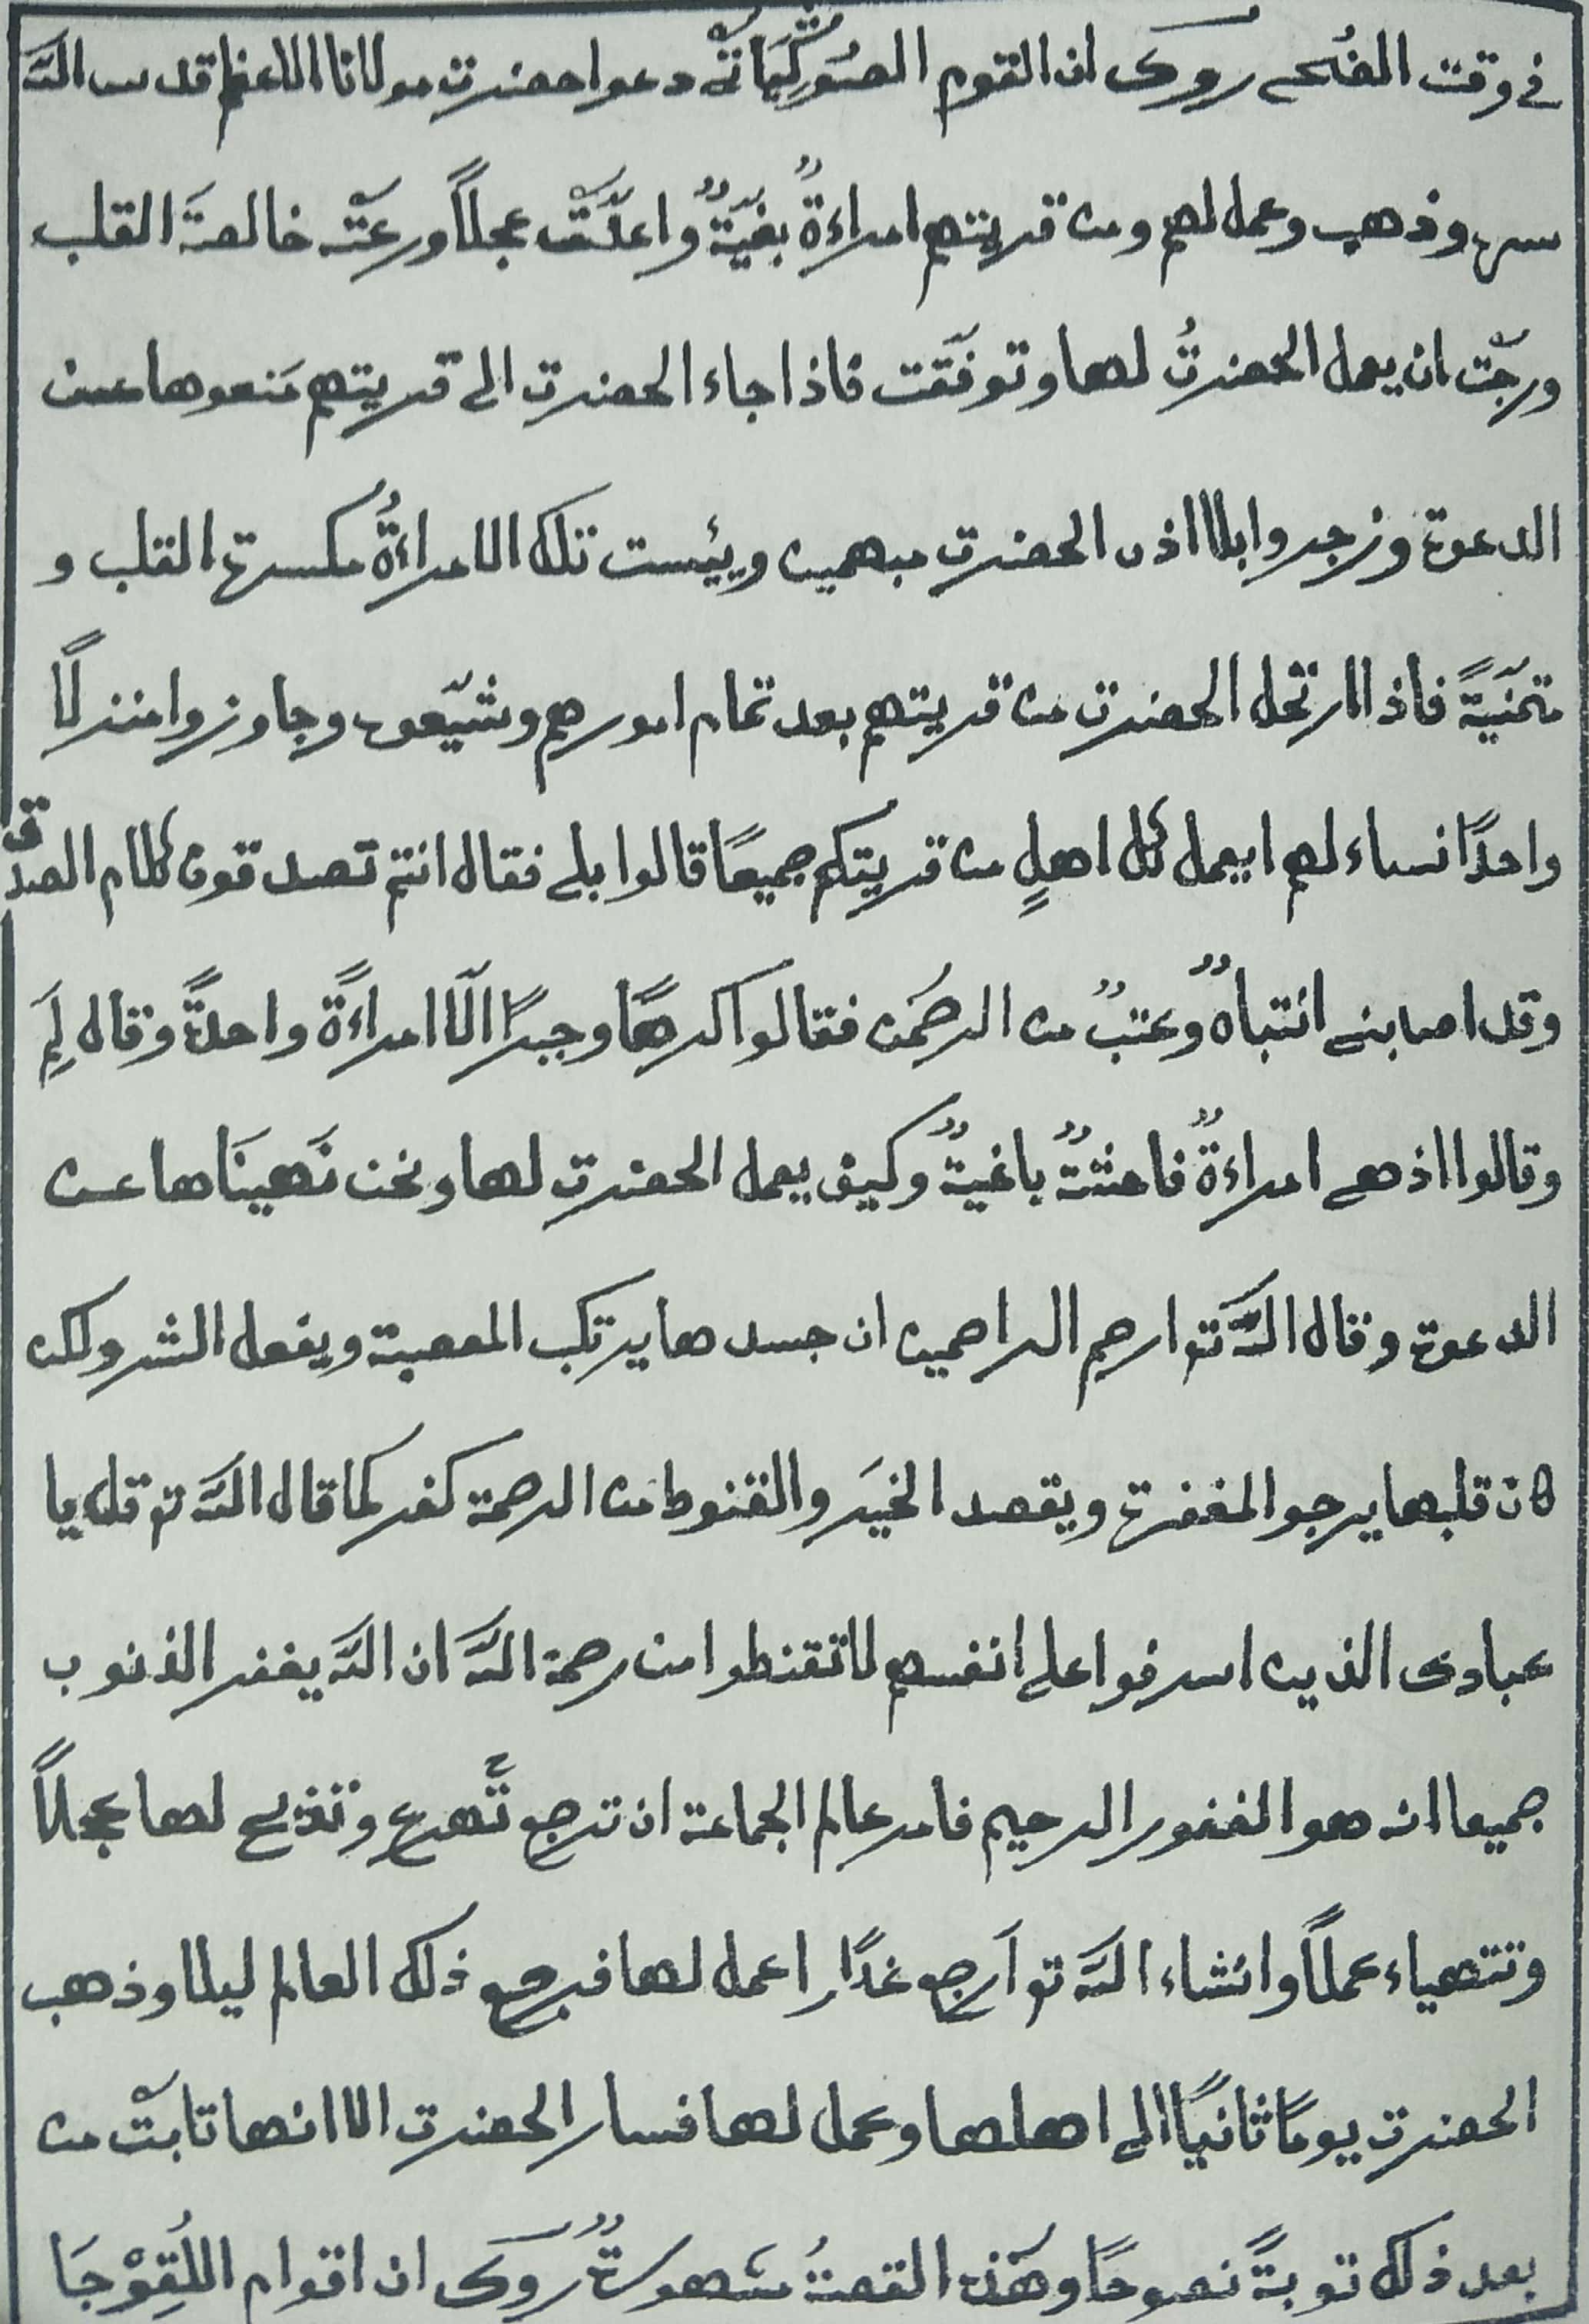 في وقت الضُحى روى ان القوم الصُوركِيَاتّه دعوا حضرت مولانا الاعظم قدس الله
سره وذهب وعمل لهم ومن قريتهم امراءةٌ بغيّةٌ واعلّقت عجلاً ورعته خالصةَ القلب
ورجّت ان يعمل الحضرتُ لها وتوفّقت فاذا جاء الحضرت الى قريتهم مَنعوها عن
الدعوة وزجروا بلا اذن الحضرت مبهمين ويئست تلك الامراءةُ مكسرة القلب و
متمنّيةً فاذا ارتحل الحضرت من قريتهم بعد تمام امورهم وشيّعوه وجاوزوا منزلًا
واحدًا نساء لهم ايعمل كل اهلٍ من قريتكم جميعًا قالوا بلى فقال انتم تصدقون كلام الصدق
وقد اصابنى انتباهٌ وعتبٌ من الرحمٰن فقالوا كرهًا وجبرًا الّا امراءةً واحدةً وقال لِمَ
وقالوا اذ هى امراءةٌ فاحشةٌ باغيةٌ وكيف يعمل الحضرت لها ونحن نَهينَاها عن
الدعوة وقال الله تعا ارحم الراحمين ان جسدها يرتكب المعصية ويفعل الشر ولكن
كان قلبها يرجو المغفرة ويقصد الخيَر والقنوط من الرحمة كفر كما قال الله تع قل يا
عبادى الذين اسرفوا على انفسهم لا تقنطوا من رحمة الله ان الله يغفر الذنوب
جميعا انه هو الغفور الرحيم فامر عالم الجماعة ان ترجع تَهرع وتذبح لها عجلاً
وتتهياء عملاً وانشاء الله تعا آرجع غدًا اعمل لها فيرجع ذلك العالم ليلا وذهب
الحضرت يومًا ثانيًا الى اهلها وعمل لها فسار الحضرت الا انها تابتْ من
بعد ذلك توبةً نصوحًا وهٰذه القصةُ مشهورةٌ روى ان اقوام اللُقِوْجَا